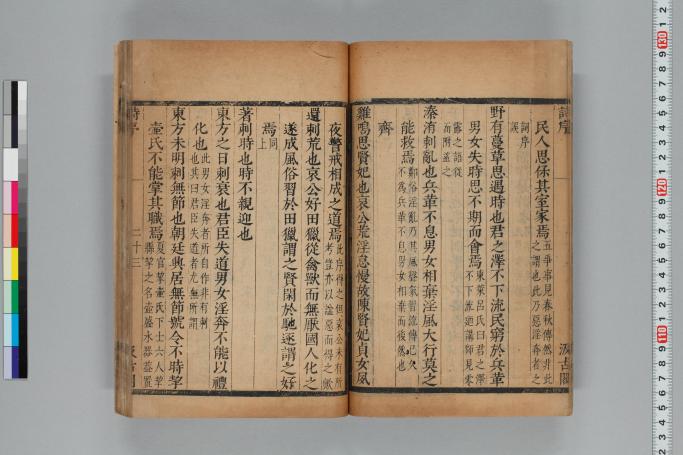 詩序
汲古閣
民人思保其室家焉
五爭事見春秋傳然非此
之謂也此乃惡淫奔者之
詞序
誤
野有蔓草思遇時也君之澤不下流民窮於兵革
男女失時思不期而會焉
東萊呂氏曰君之澤
不下流迺講師見零
露之語從
而附益之
溱洧刺亂也兵革不息男女相棄淫風大行莫之
能救焉
鄭俗淫亂乃其風聲氣習流傳已久
不爲兵革不息男女相棄而後然也
齊
雞鳴思賢妃也哀公荒淫怠慢故陳賢妃貞女夙
夜警戒相成之道焉
此序得之但哀公未有所
考豈亦以謚惡而得之歟
還刺荒也哀公好田獵從禽獸而無厭國人化之
遂成風俗習於田獵謂之賢閑於馳逐謂之好
焉
同
上
著刺時也時不親迎也
東方之日刺衰也君臣失道男女淫奔不能以禮
化也
此男女淫奔者所自作非有刺
也其曰君臣失道者尤無所謂
東方未明刺無節也朝廷興居無節號令不時挈
壺氏不能掌其職焉
夏官挈壺氏下士六人挈
縣挈之名壺盛水器蓋置
詩序
二十三
汲古閣